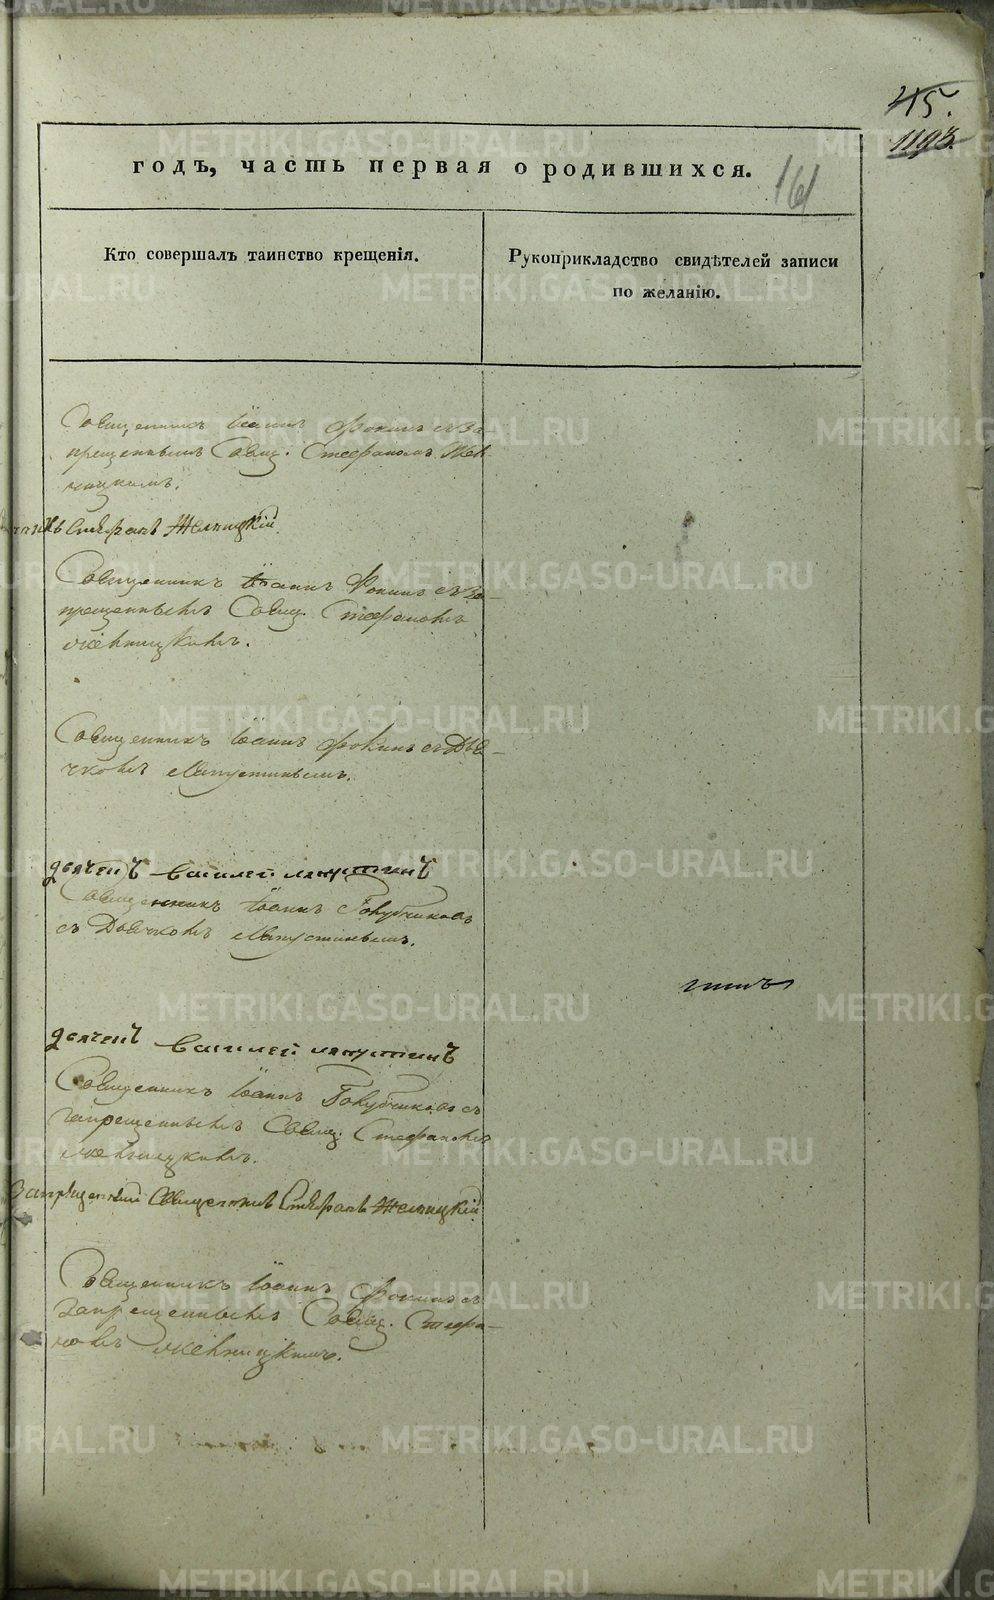 45.
1193.
161
годъ, часть первая о родившихся.
Кто совершалъ таинство крещенія.
Рукоприкладство свидѣтелей записи
по желанію.
Священникъ Іоаннъ Фокинъ съ за-
прещеннымъ Свящ. Стефаномъ Жел-
ницкимъ.
Стефанъ Желницкій
Священникъ Іоаннъ Фокинъ съ за-
прещеннымъ Свящ. Стефаномъ
Желницкимъ.
Священникъ Іоаннъ Фокинъ съ Дья-
чкомъ Лапустинымъ.
дьячекъ Василей Лапустинъ
Священникъ Іоаннъ Голубчиковъ
съ Дьячкомъ Лапустинымъ.
дьячекъ Василей Лапустинъ
Священникъ Іоаннъ Голубчиковъ съ
запрещеннымъ Свящ. Стефаномъ
Желницкимъ.
Запрещенный Священникъ Стефанъ Желницкій
Священникъ Іоаннъ Фокинъ съ
запрещеннымъ Свящ. Стефа-
номъ Желницкимъ.
METRIKI.GASO-URAL.RU